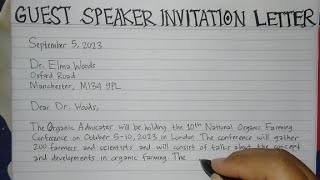 GUEST SPEAKER INVITATION LETTER
September 5, 2023
Dr. Elma Woods
Oxford Road
Manchester, M134 9PL
Dear Dr. Woods,
The Organic Advocates will be holding the 10th National Organic Farming
Conference on October 5-10, 2023 in London. The conference will gather
200 farmers and scientists and will consist of talks about the concept
and developments in organic farming. The